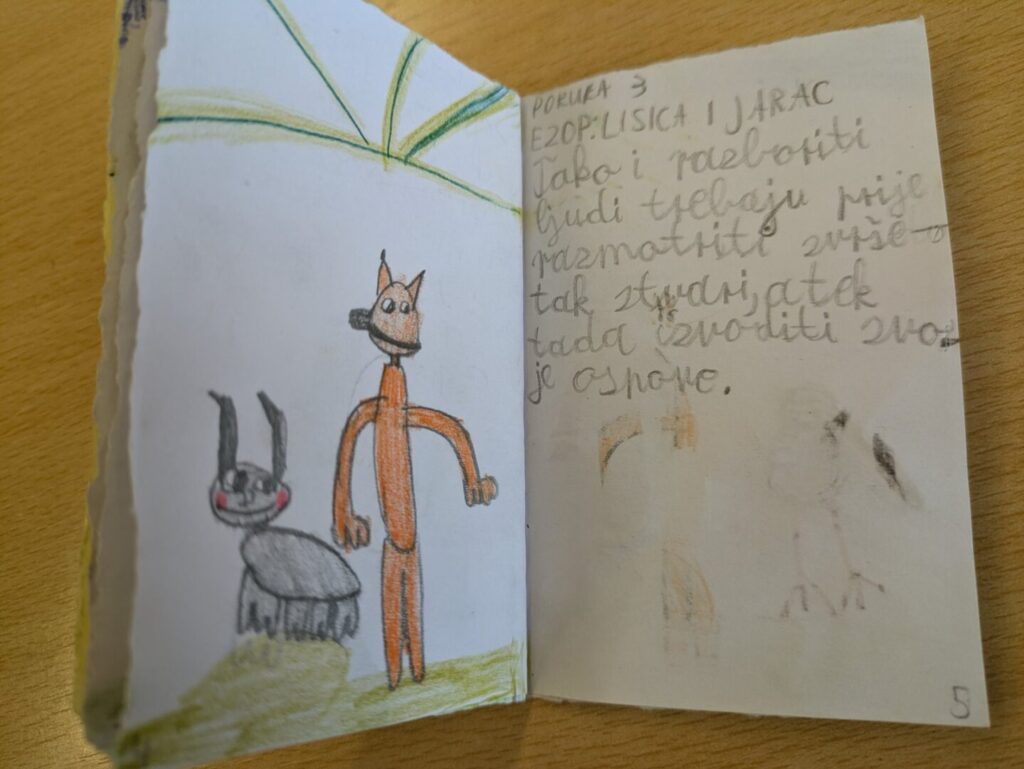 PORUKA 3
EZOP: LISICA I JARAC
Tako i razboriti
ljudi trebaju prije
razmotriti zvrše-
tak stvari, a tek
tada izvoditi
je
5